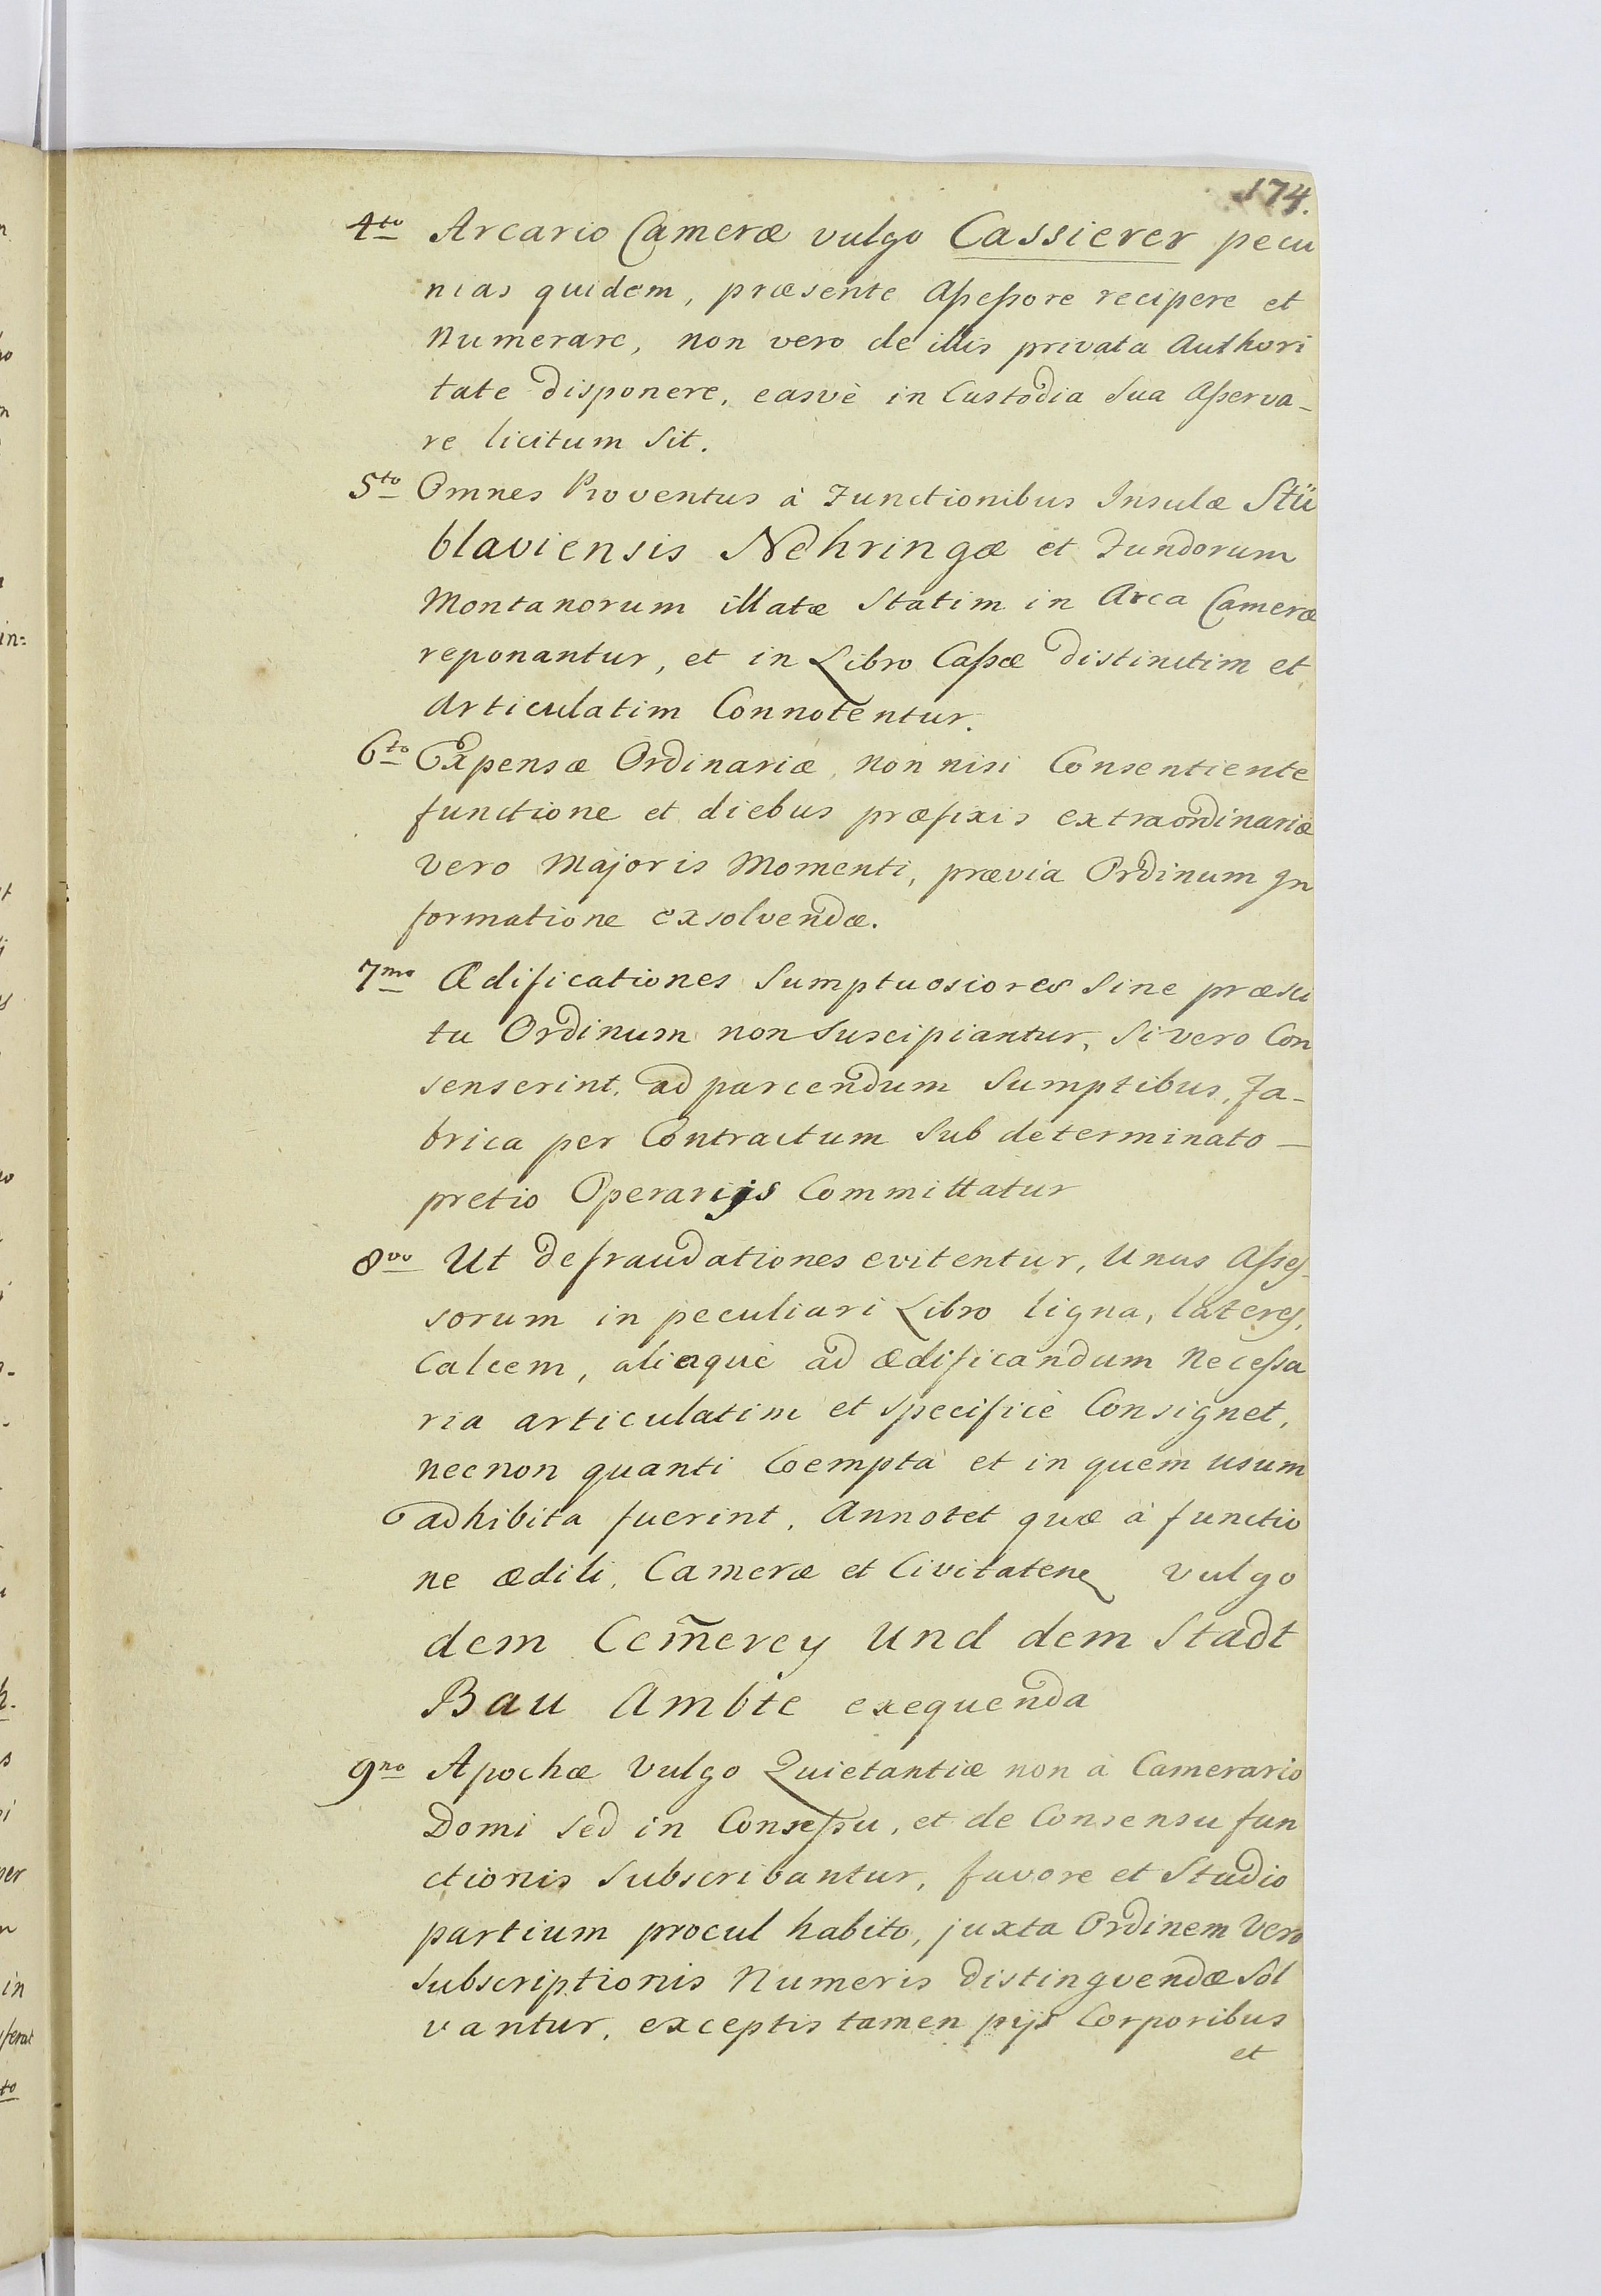 174.
4to Arcario Cameræ vulgo Cassierer pecu
nias quidem, præsente Aſseſsore recipere et
Numerare, non vero de illis privata Authori
tate disponere, easvè in Custodia Sua Aſserva-
re licitum sit.
5to Omnes Proventus à Functionibus Insulæ Stü
blaviensis Nehringæ et Fundorum
Montanorum illatæ statim in Arca Cameræ
reponantur, et in Libro Caſsæ distinctim et
Articulatim Connotentur.
6to Expensæ Ordinariæ, non nisi Consentiente
functione et diebus præfixis extraordinariæ
vero Majoris Momenti, prævia Ordinum In
formatione exsolvendæ.
7mo Ædificationes Sumptuosiores Sine præsci
tu Ordinum non Suscipiantur, Si vero Con
senserint, ad parcendum Sumptibus, Fa-
brica per Contractum Sub determinato —
pretio Operarijs Committatur
8vo Ut defraudationes evitentur, Unus Aſseſ-
sorum in peculiari Libro ligna, lateres,
Calcem, aliaquè ad ædificandum Neceſsa
ria articulatim et specificè Consignet,
necnon quanti Coempta et in quem usum
adhibita fuerint, Annotet quæ à functio
ne ædili, Cameræ et Civitatene vulgo
dem Cem̃erey und dem Stadt
Bau Ambte exequenda
9no Apochæ Vulgo Quietantiæ non à Camerario
Domi sed in Conseſsu, et de Consensu fun
ctionis Subscribantur, favore et Studio
partium procul habito, juxta Ordinem Vero
Subscriptionis Numeris distingvendæ Sol
vantur, exceptis tamen pijs Corporibus
et